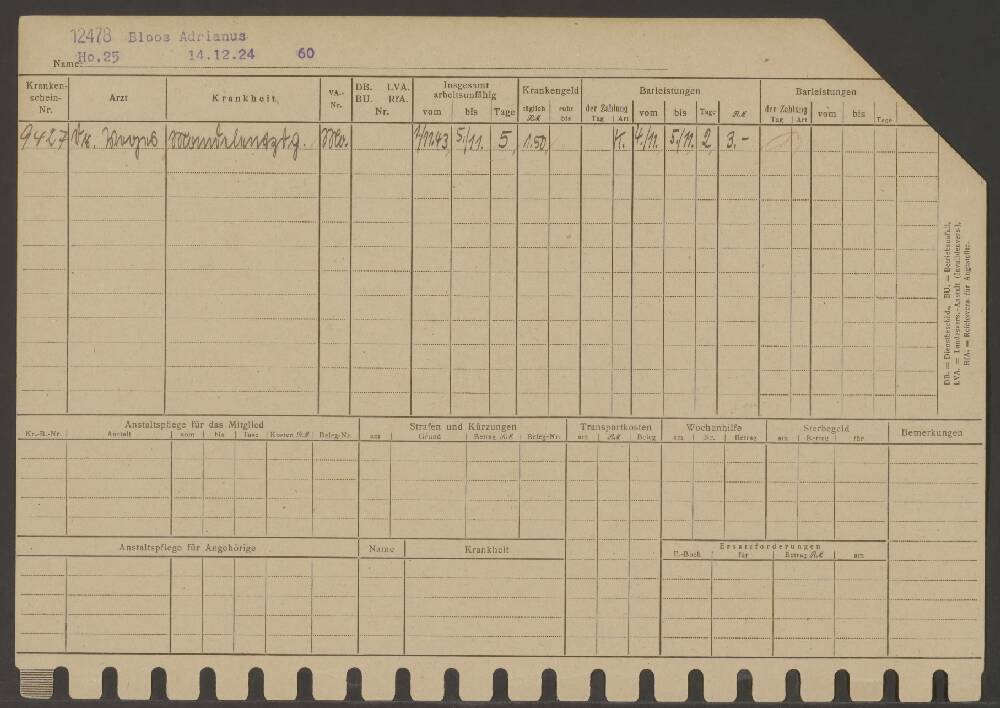 12478 Bloos Adrianus
Name: Ho.25 14.12.24 60
Kranken-schein-Nr. Arzt Krankheit VA.-Nr. DB. LVA. BU. RfA. Nr. Insgesamt arbeitsunfähig vom bis Tage Krankengeld täglich RM ruht bis Barleistungen der Zahlung Tag Art vom bis Tage RM Barleistungen der Zahlung Tag Art vom bis Tage
9427 Dr. Mandelentzdg. Mo. 1/11.43 5./11. 5 1.50 K. 4./11. 5./11. 2 3.-
DB. = Dienstbeschäd., BU. = Betriebsunfall,
LVA. = Landesvers.-Anstalt (Invalidenvers.),
RfA. = Reichsvers. für Angestellte.
Anstaltspflege für das Mitglied Strafen und Kürzungen Transportkosten Wochenhilfe Sterbegeld Bemerkungen
Kr.-B.-Nr. Anstalt vom bis Tage Kosten RM Beleg-Nr. am Grund Betrag RM Beleg-Nr. am RM Beleg am Nr. Betrag am Betrag für
Anstaltspflege für Angehörige Name Krankheit Ersatzforderungen
E.-Buch für Betrag RM am